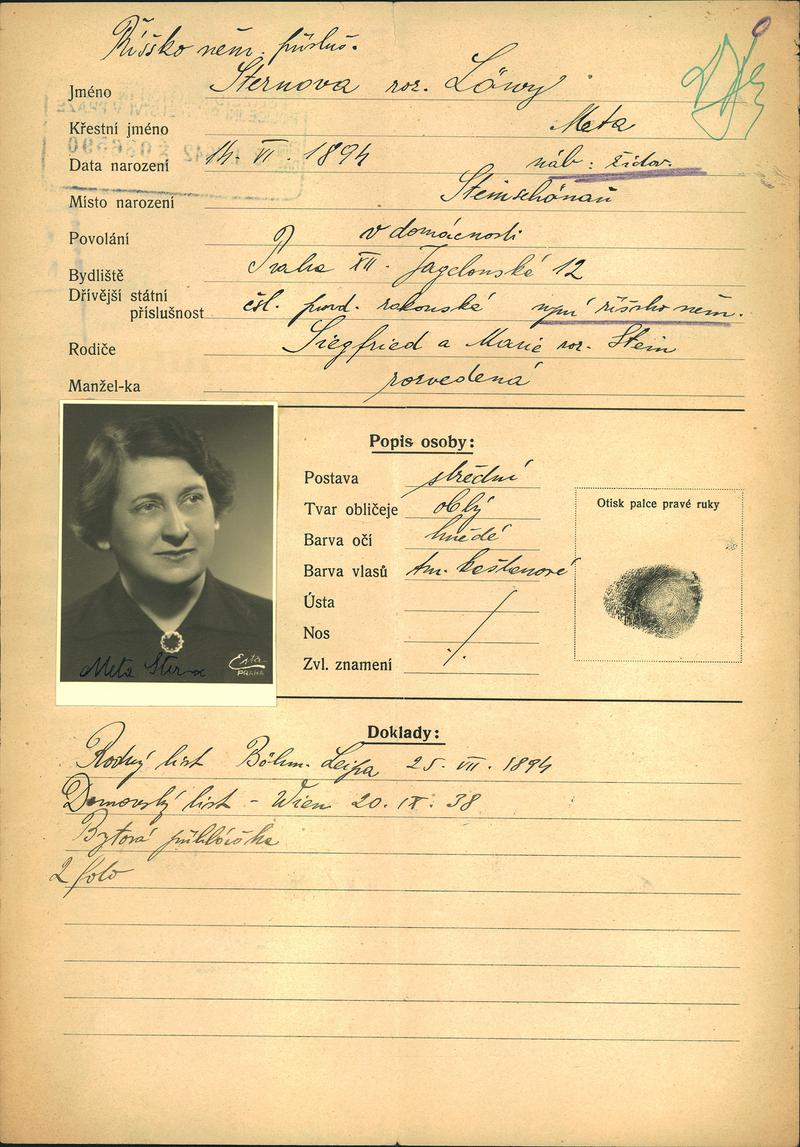 Říšsko něm. přísluš.
Jméno Sternova roz. Löwy
Křestní jméno Meta
Data narození 14. VI. 1894 náb: židov.
Místo narození Steinschönau
Povolání v domácnosti
Bydliště Praha XII. Jagelonská 12
Dřívější státní
příslušnost čsl. pův. rakouská nyní říšsko něm.
Rodiče Siegfried a Marie roz. Stein
Manžel-ka rozvedená
Popis osoby:
Postava střední
Tvar obličeje oblý
Barva očí hnědé
Barva vlasů tm. kaštanové
Ústa
Nos
Zvl. znamení
Otisk palce pravé ruky
Meta Stern
Esta
PRAHA
Doklady:
Rodný list Böhm. Leipa 25. VII. 1894
Domovský list - Wien 20. IX. 38
Bytová přihláška
2 foto